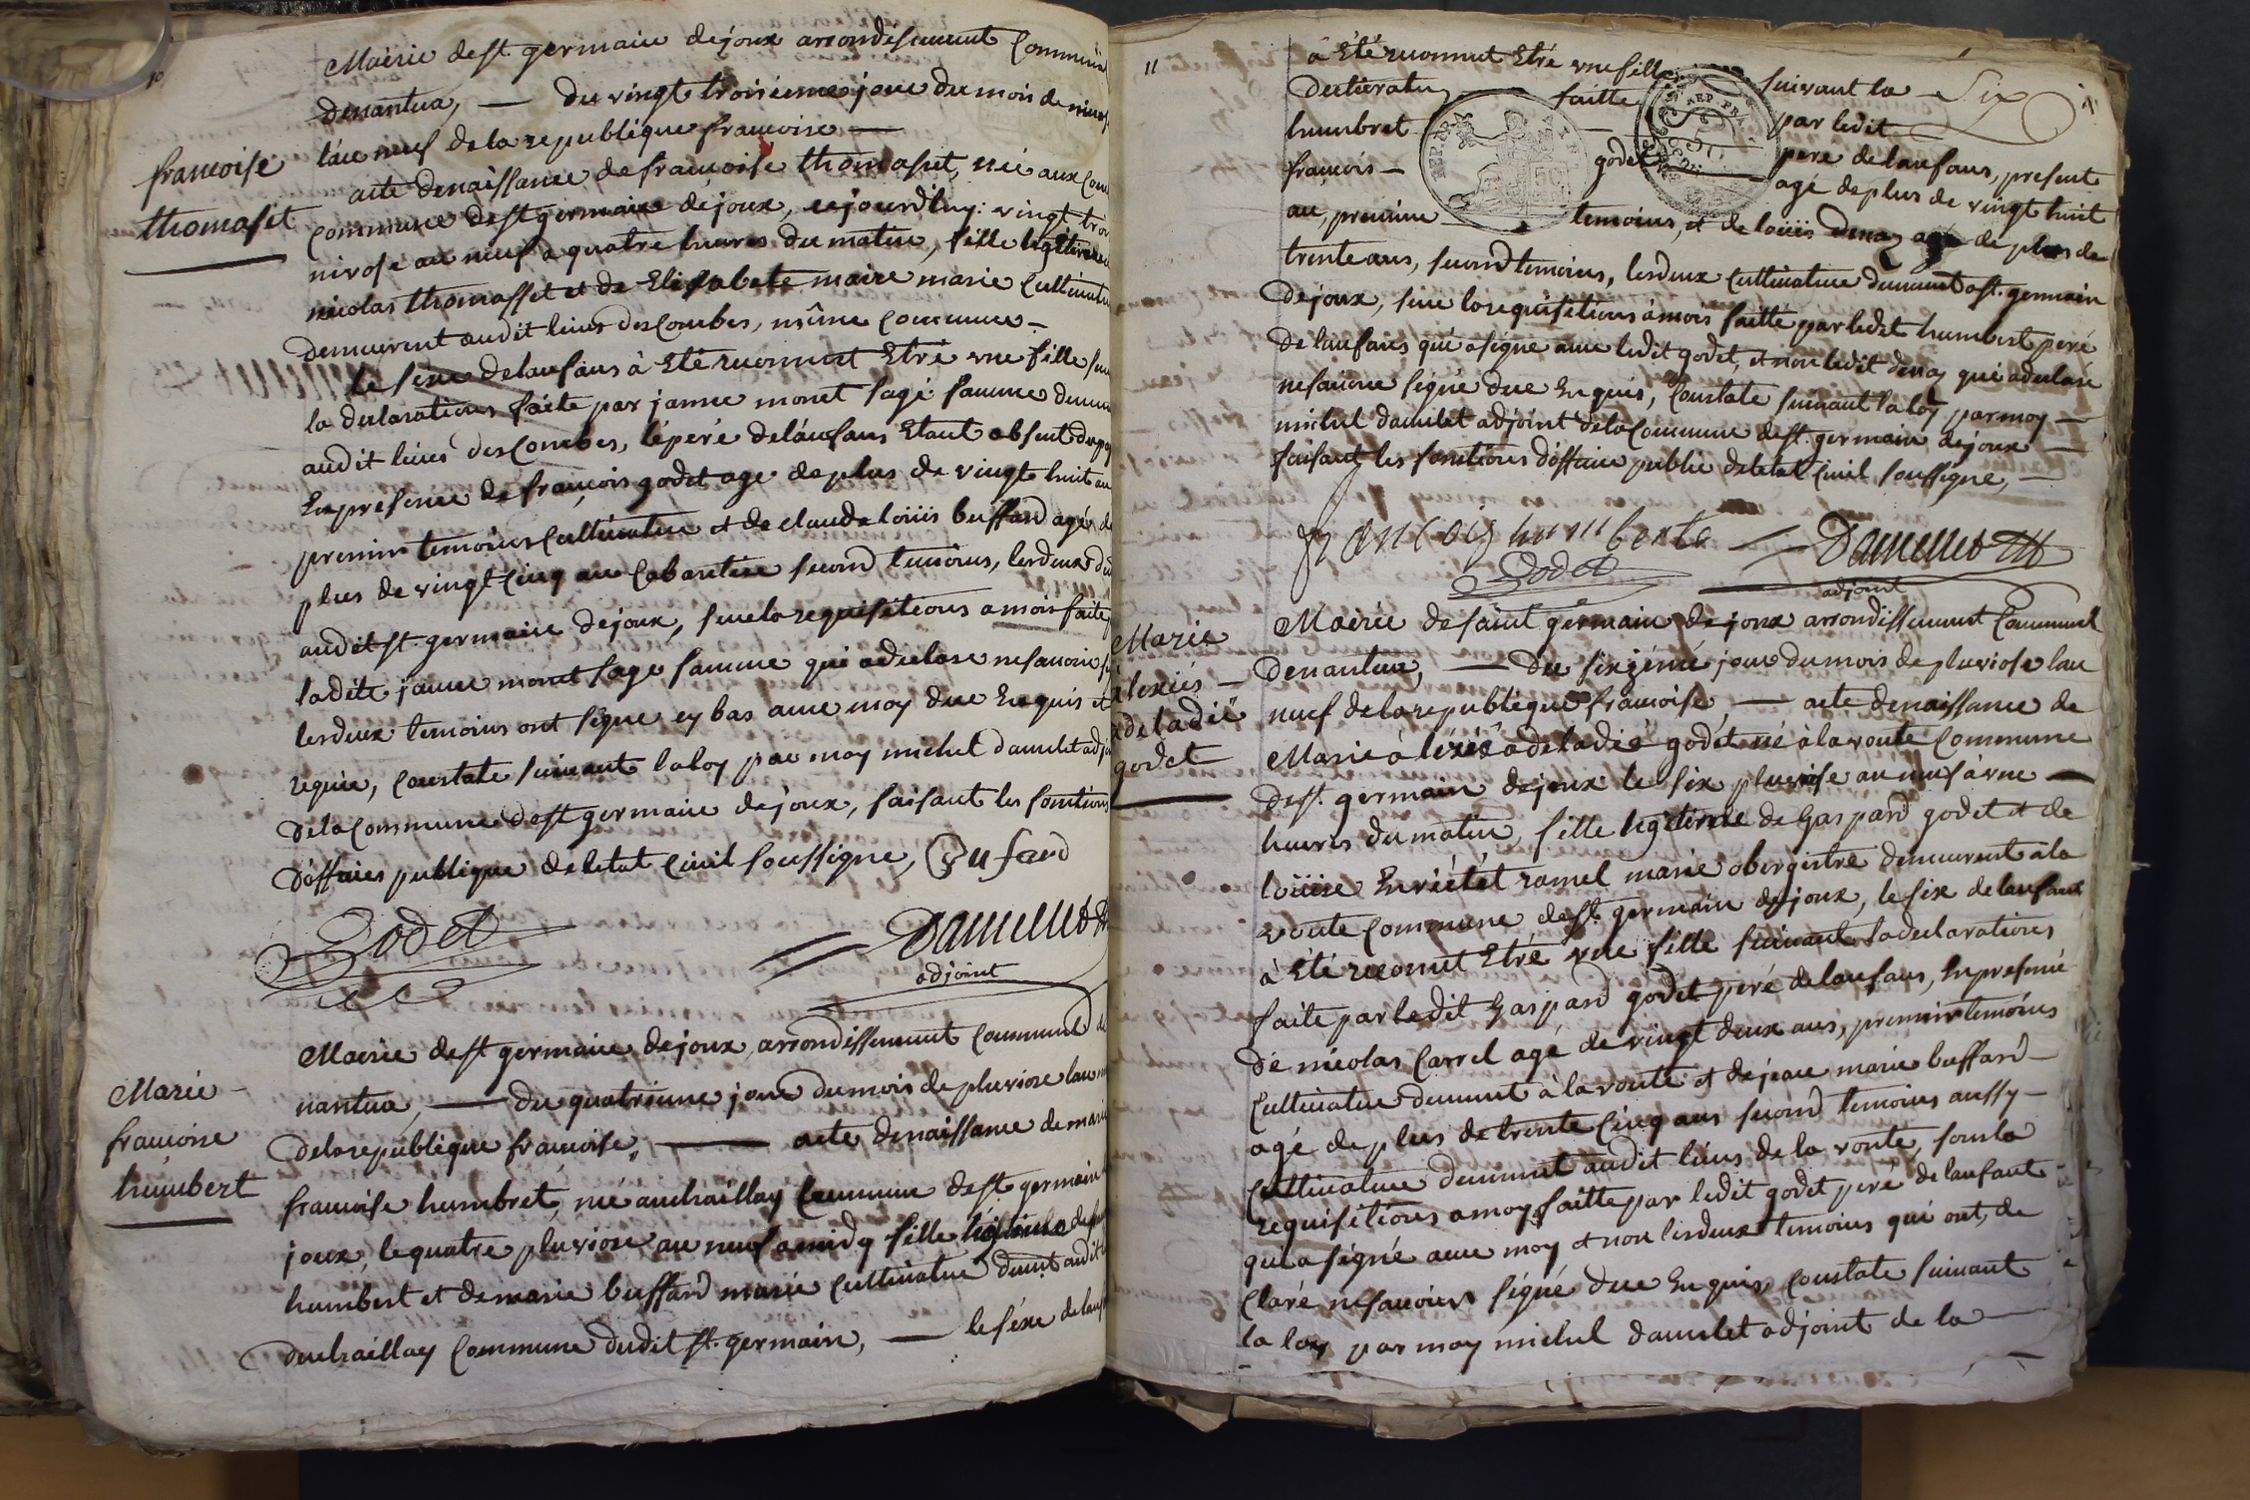 10
Mairie de st. germain dejoux arrondissement Commun
denantua, — du vingt troisieme jour du mois de nivos
l'an neuf de la republique francoise —
francoise
thomasset
acte denaissance de françoise thomaset, née aux Com
Commune de st germain dejoux, cejourdhuy vingt troi
nivose an neuf a quatre heures du matin, fille legitime
nicolas thomasset et de Elisabete maire marie Cultivateu
demeurent audit lieus des Combes, même Commune —
le sexe de lenfans à été reconnut Etré une fille sui
la declarations faite par janne monet sage famme demeu
audit lieus des Combes, le peré de lenfans Etant absent du pay
En presence de françois godet age de plus de vingt huit an
premier temoins Cultivateur et de claude louiis buffard agé de
plus de vingt Cinq ans Cabaretier second temoins, lesdeux de
audit st. germain dejoux, sur la requisitions a mois faite
ladite janne monet sage famme qui a declare ne savoir
les deux temoins ont signe cy bas avec moy due Enquis et
requis, Constate suivant la loy par moy michel daumlet adjoi
de la Commune de st germain dejoux, faisant les fonctions
d'officies publique de letat Civil soussigne, Bufard
Godet
adjoint
Marie
francoise
humbert
Mairie de st germain dejoux arrondissement Communel de
nantua, — du quatrieme jour du mois de pluviose lan
de la republique francoise, — acte denaissance de marie
francoise humbret, née au chaillay Commune de st germain
joux, le quatre pluviose an neuf a midy fille légitime de
humbert et de marie buffard marié Cultivateur audit
du chaillay Commune dudit st. germain, — le sexe de lanf
11
Six
à été reconnut Etré une fille suivant la
declaration faitte par ledit
humbret — pere de lanfans, present
françois — godet — agé de plus de vingt huit
an, premier temoins, et de louiis age de plus de
trente ans, second temoins, lesdeux Cultivateur demeurent a st. germain
dejoux, sur la requisitions à mois faitte par ledit humbert peré
de lanfans qui a signe avec ledit godet, et non ledit qui a declaré
ne savoir signé due Enquis, Constate suivant la loy par moy —
michel daumlet adjoint de la Commune de st. germain dejoux —
faisant les fonctions d'officier public de letat Civil soussigne, —
francois humberte
Godet
adjoint
Marie
alexiés —
adeladié
godet
Mairie de saint germain dejoux arrondissement Communel
denantua, — du sixiéme jour du mois de pluviose lan
neuf de la republique francoise, — acte denaissance de
Marie aléxié adeladié godét né à la voute Commune
de st. germain dejoux le six pluviose an neuf à une —
heures du matin, fille legitime de Gaspard godet et de
loüise Enriétét ramel marie obergistre demeurent a la
voute Commune de st. germain dejoux, le sixe de lanfant
à été reconnut Etré une fille suivant la declarations
faite par ledit Gaspard godet peré de lanfans, En presence
de nicolas Carrel agé de vingt deux ans, premier temoins
Cultivateur demeurt à la voute et de jean marie buffard —
agé de plus de trente Cinq ans second temoins aussy —
Cultivateur demeurt audit lieus de la voute, sur la
requisitions a moy faitte par ledit godet peré de lanfant
qui a signé avec moy et non lesdeux temoins qui ont, de
Claré ne savoir signé due Enquis, Constate suivant
la loy par moy michel daumlet adjoint de la —